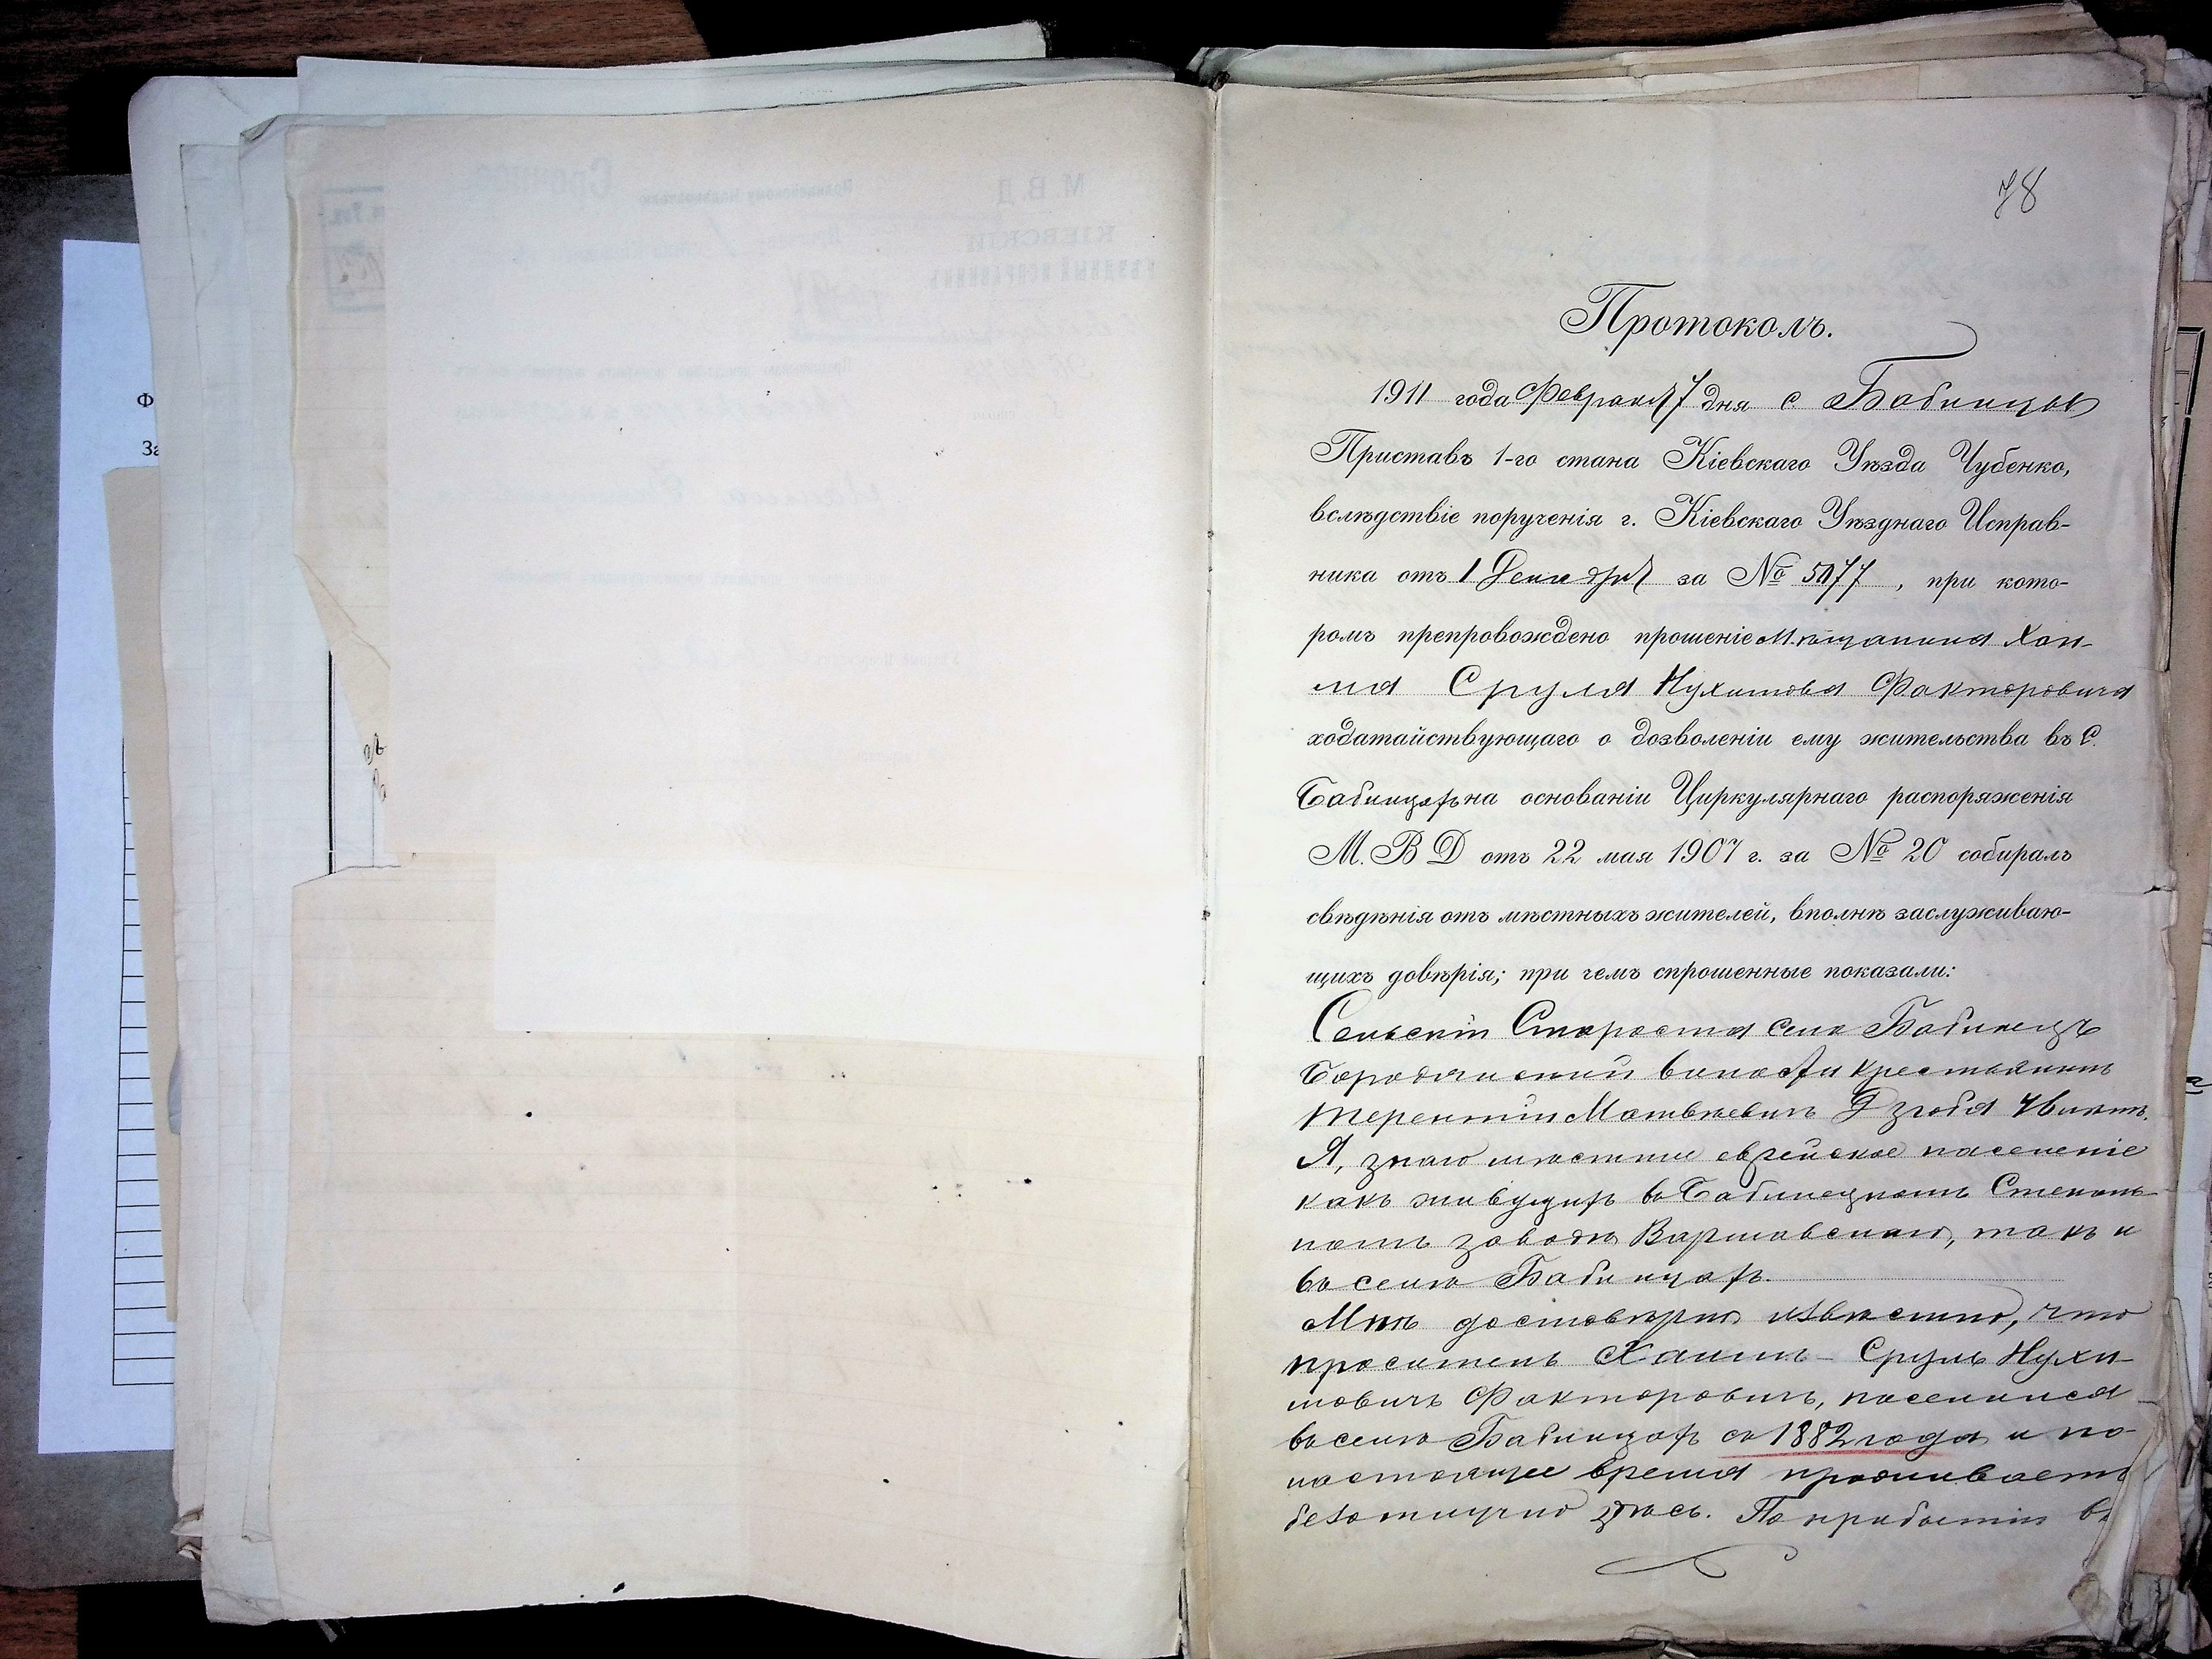 78
Протоколъ.
1911 года Февраля 7 дня с. Бабинцы
Приставъ 1-го стана Кіевскаго Уѣзда Чубенко,
вслѣдствіе порученія г. Кіевскаго Уѣзднаго Исправ-
ника отъ 1 Декабря за № 5177, при кото-
ромъ препровождено прошеніе Мѣщанина Хаи-
ма Сруля Нухимова Факторовича
ходатайствующаго о дозволеніи ему жительства въ С.
Бабинцахъ на основаніи Циркулярнаго распоряженія
М. В Д отъ 22 мая 1907 г. за № 20 собиралъ
свѣдѣнія отъ мѣстныхъ жителей, вполнѣ заслуживаю-
щихъ довѣрія; при чемъ спрошенные показали:
Сельскій Староста села Бабинецъ
Бородянской волости крестьянинъ
Терентій Матвѣевичъ Дзюба
Я, знаю мѣстное еврейское населеніе
какъ живущихъ въ Бабинецкомъ Стеколь-
номъ заводѣ Варшавскаго, такъ и
въ селѣ Бабинцахъ.
Мнѣ достовѣрно извѣстно, что
проситель Хаимъ-Сруль Нухи-
мовичъ Факторовичъ, поселился
въ селѣ Бабинцахъ съ 1882 года и по
настоящее время проживаетъ
безотлучно здѣсь. По прибытіи въ
Ф
За